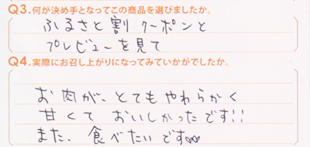 Q3.何が決め手となってこの商品を選びましたか。
ふるさと割クーポンと
プレビューを見て
Q4.実際にお召し上がりになってみていかがでしたか。
お肉が、とてもやわらかく
甘くて おいしかったです!!
また、食べたいです♡♡